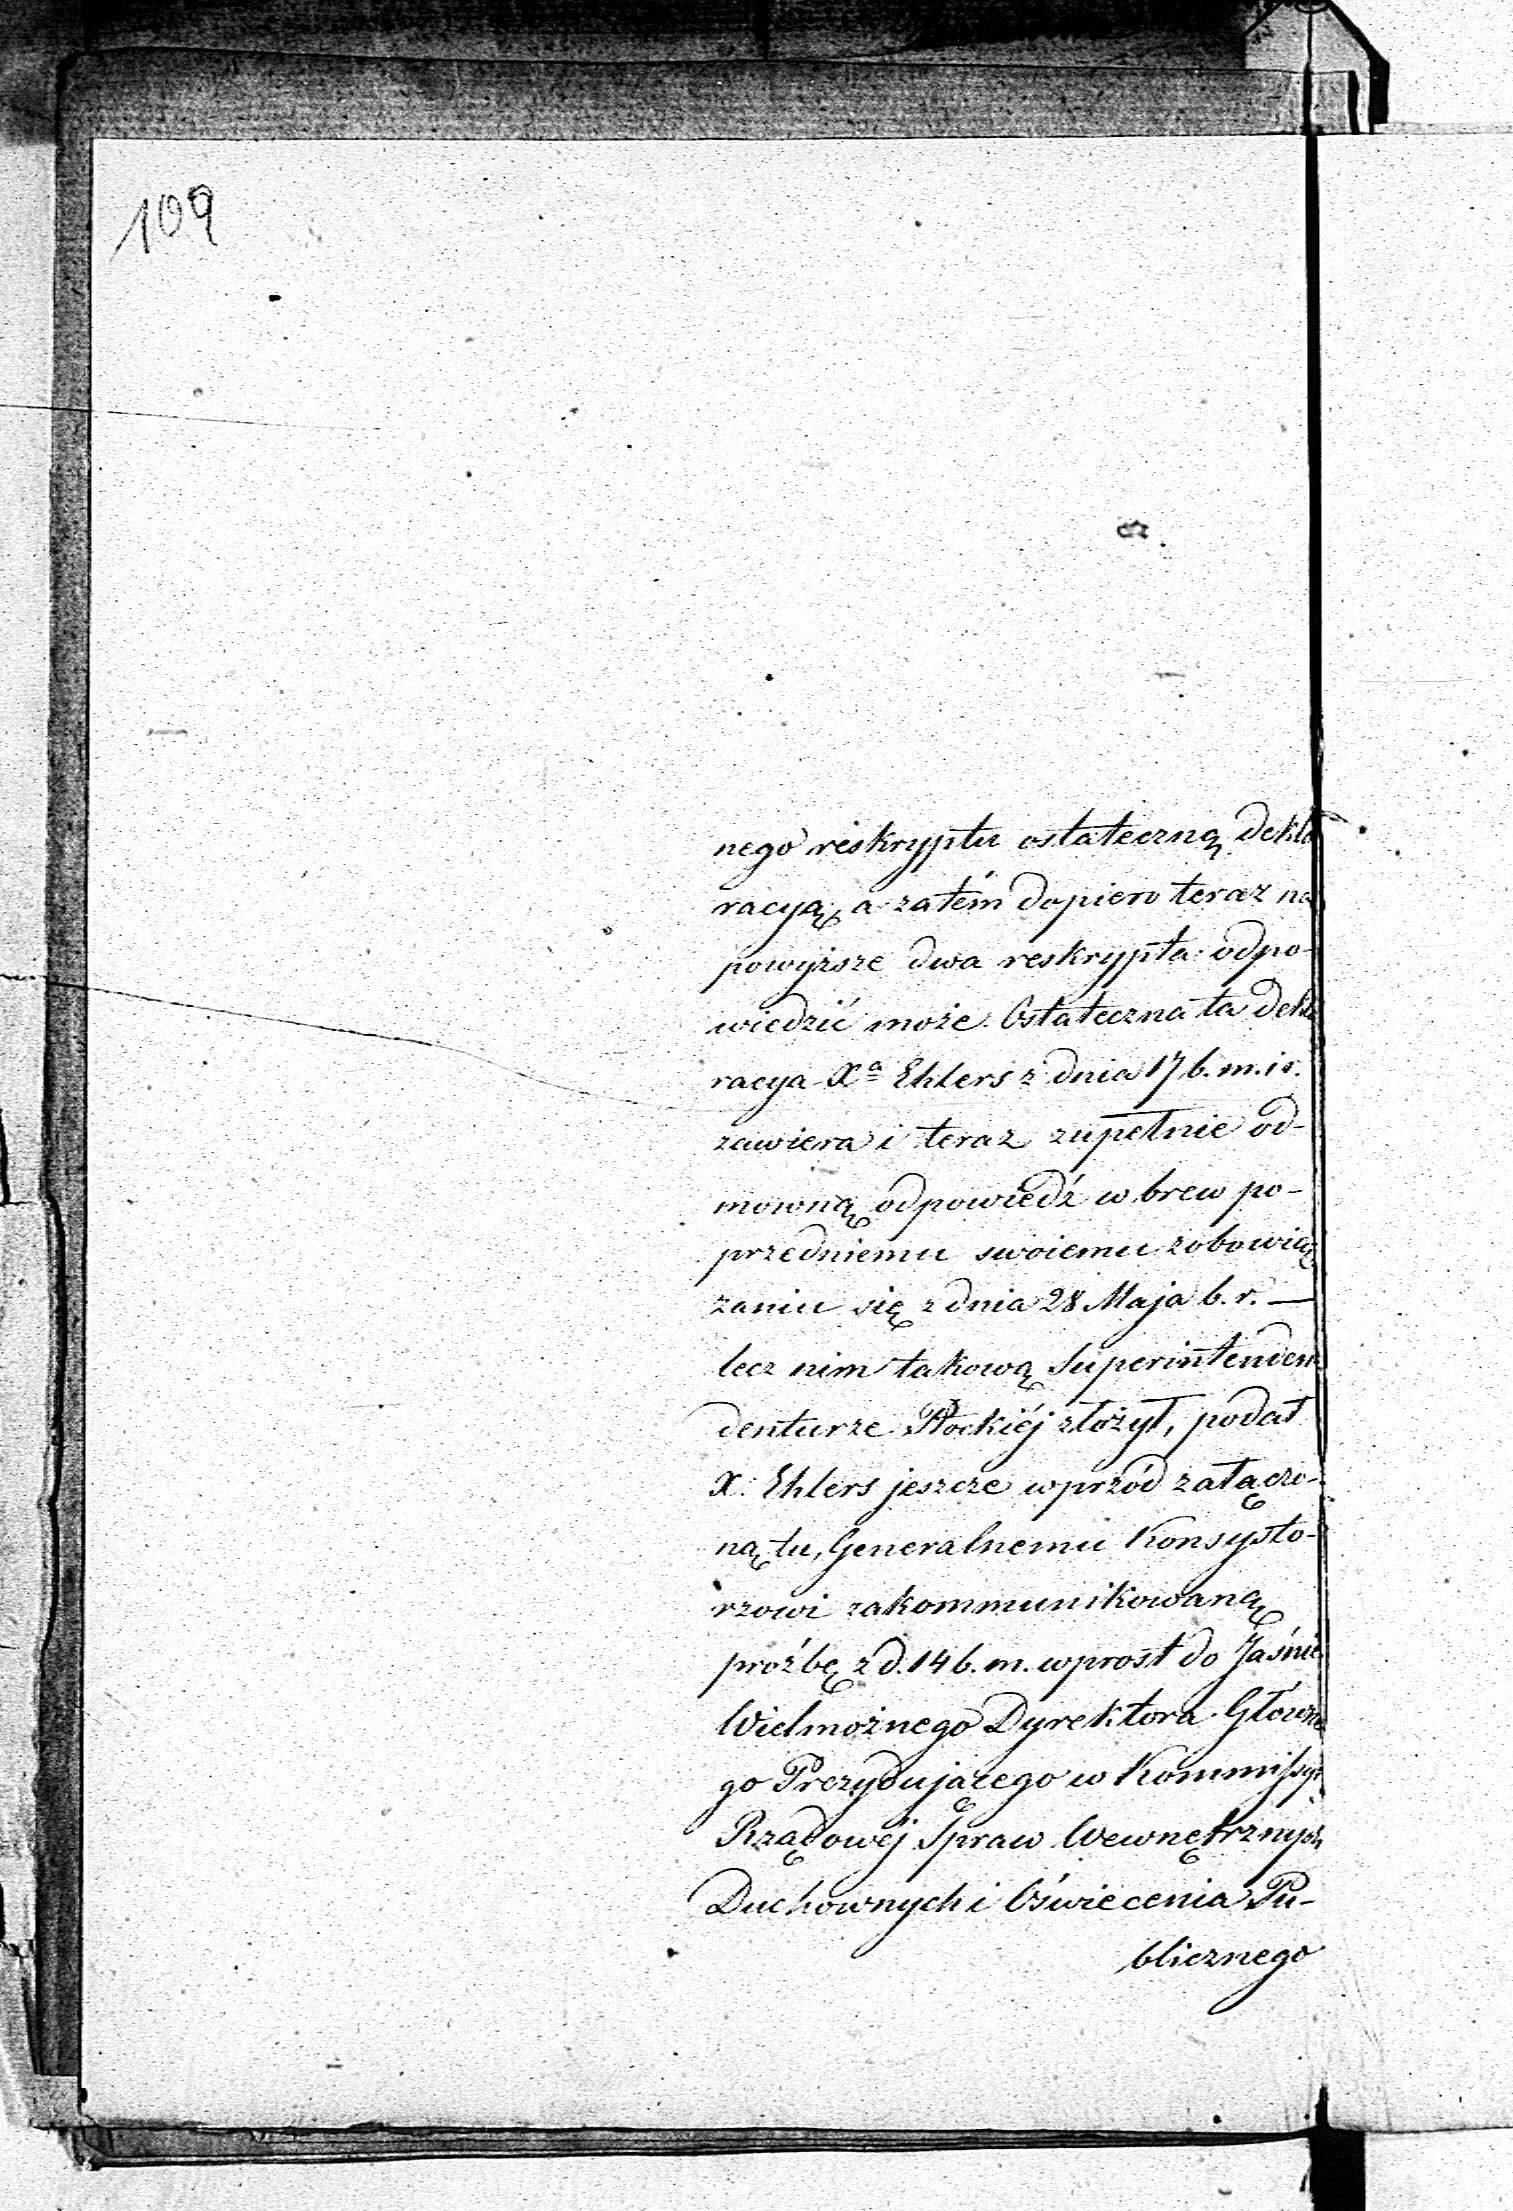 109
nego reskryptu ostateczną dekla
racyą, a zatém dopiero teraz na
powyższe dwa reskrypta odpo-
wiedzić może. Ostateczna ta dekla
racya Xa Ehlers z dnia 17 b. m. i r.
zawiera i teraz zupełnie od-
mowną odpowiedź w brew po-
przedniemu swoiemu zobowią
zaniu się z dnia 28 Maja b. r. —
lecz nim takową Superintenden
denturze Płockiéj złożył, podał
X. Ehlers jeszcze wprzód załączo-
ną tu, Generalnemu Konsysto-
rzowi zakommunikowaną
proźbę z d. 14 b. m. wprost do Jaśnie
Wielmożnego Dyrektora Główne
go Prezydującego w Kommissyi
Rządowéj Spraw Wewnętrznych
Duchownych i Oświecenia Pu-
blicznego